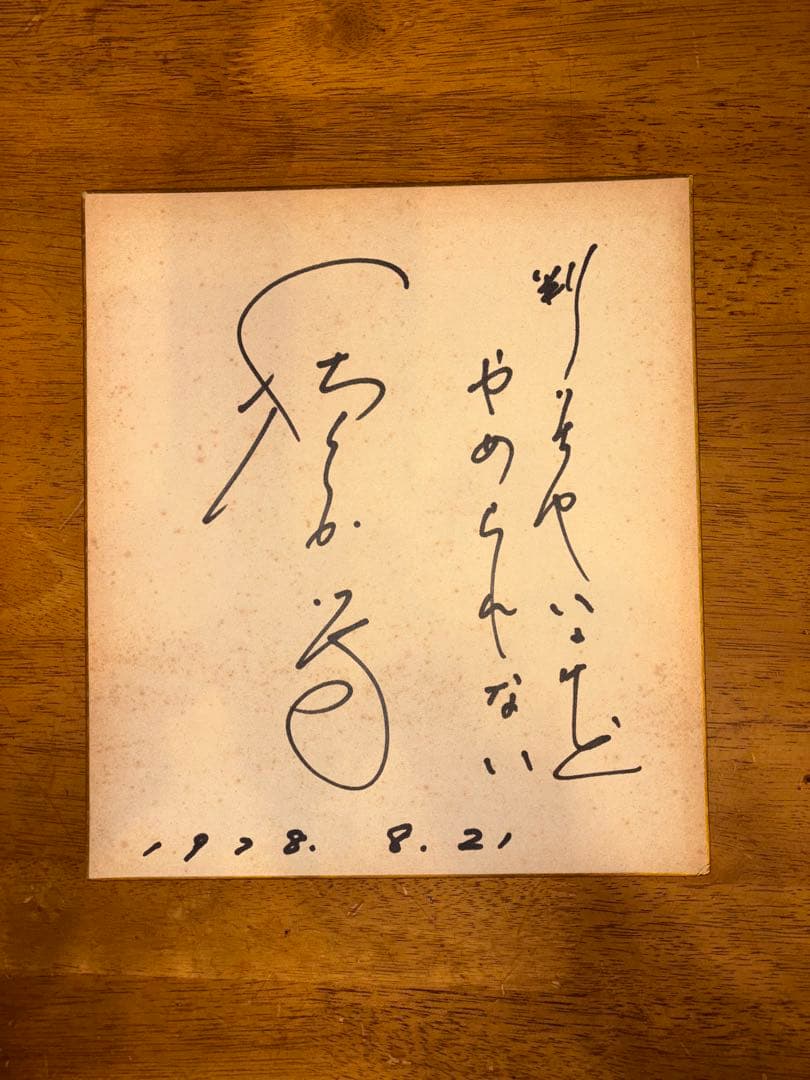 判っちゃいるけど
やめられない
1978. 8. 21